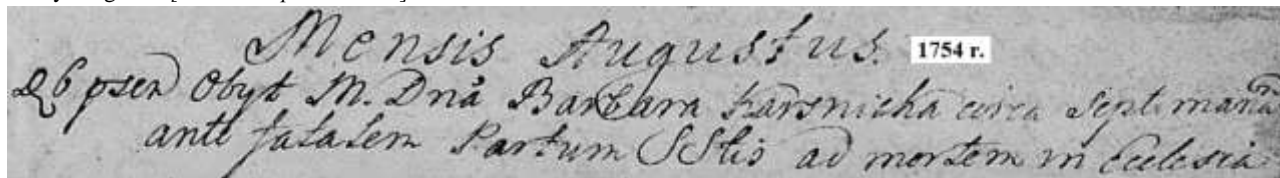 Mensis Augustus. 1754 r.
D 6 psen Obyt M. Dnã Barbara Karsnicka circa septimanã
ante fatalem Partum SSctis ad mortem in Ecclesia